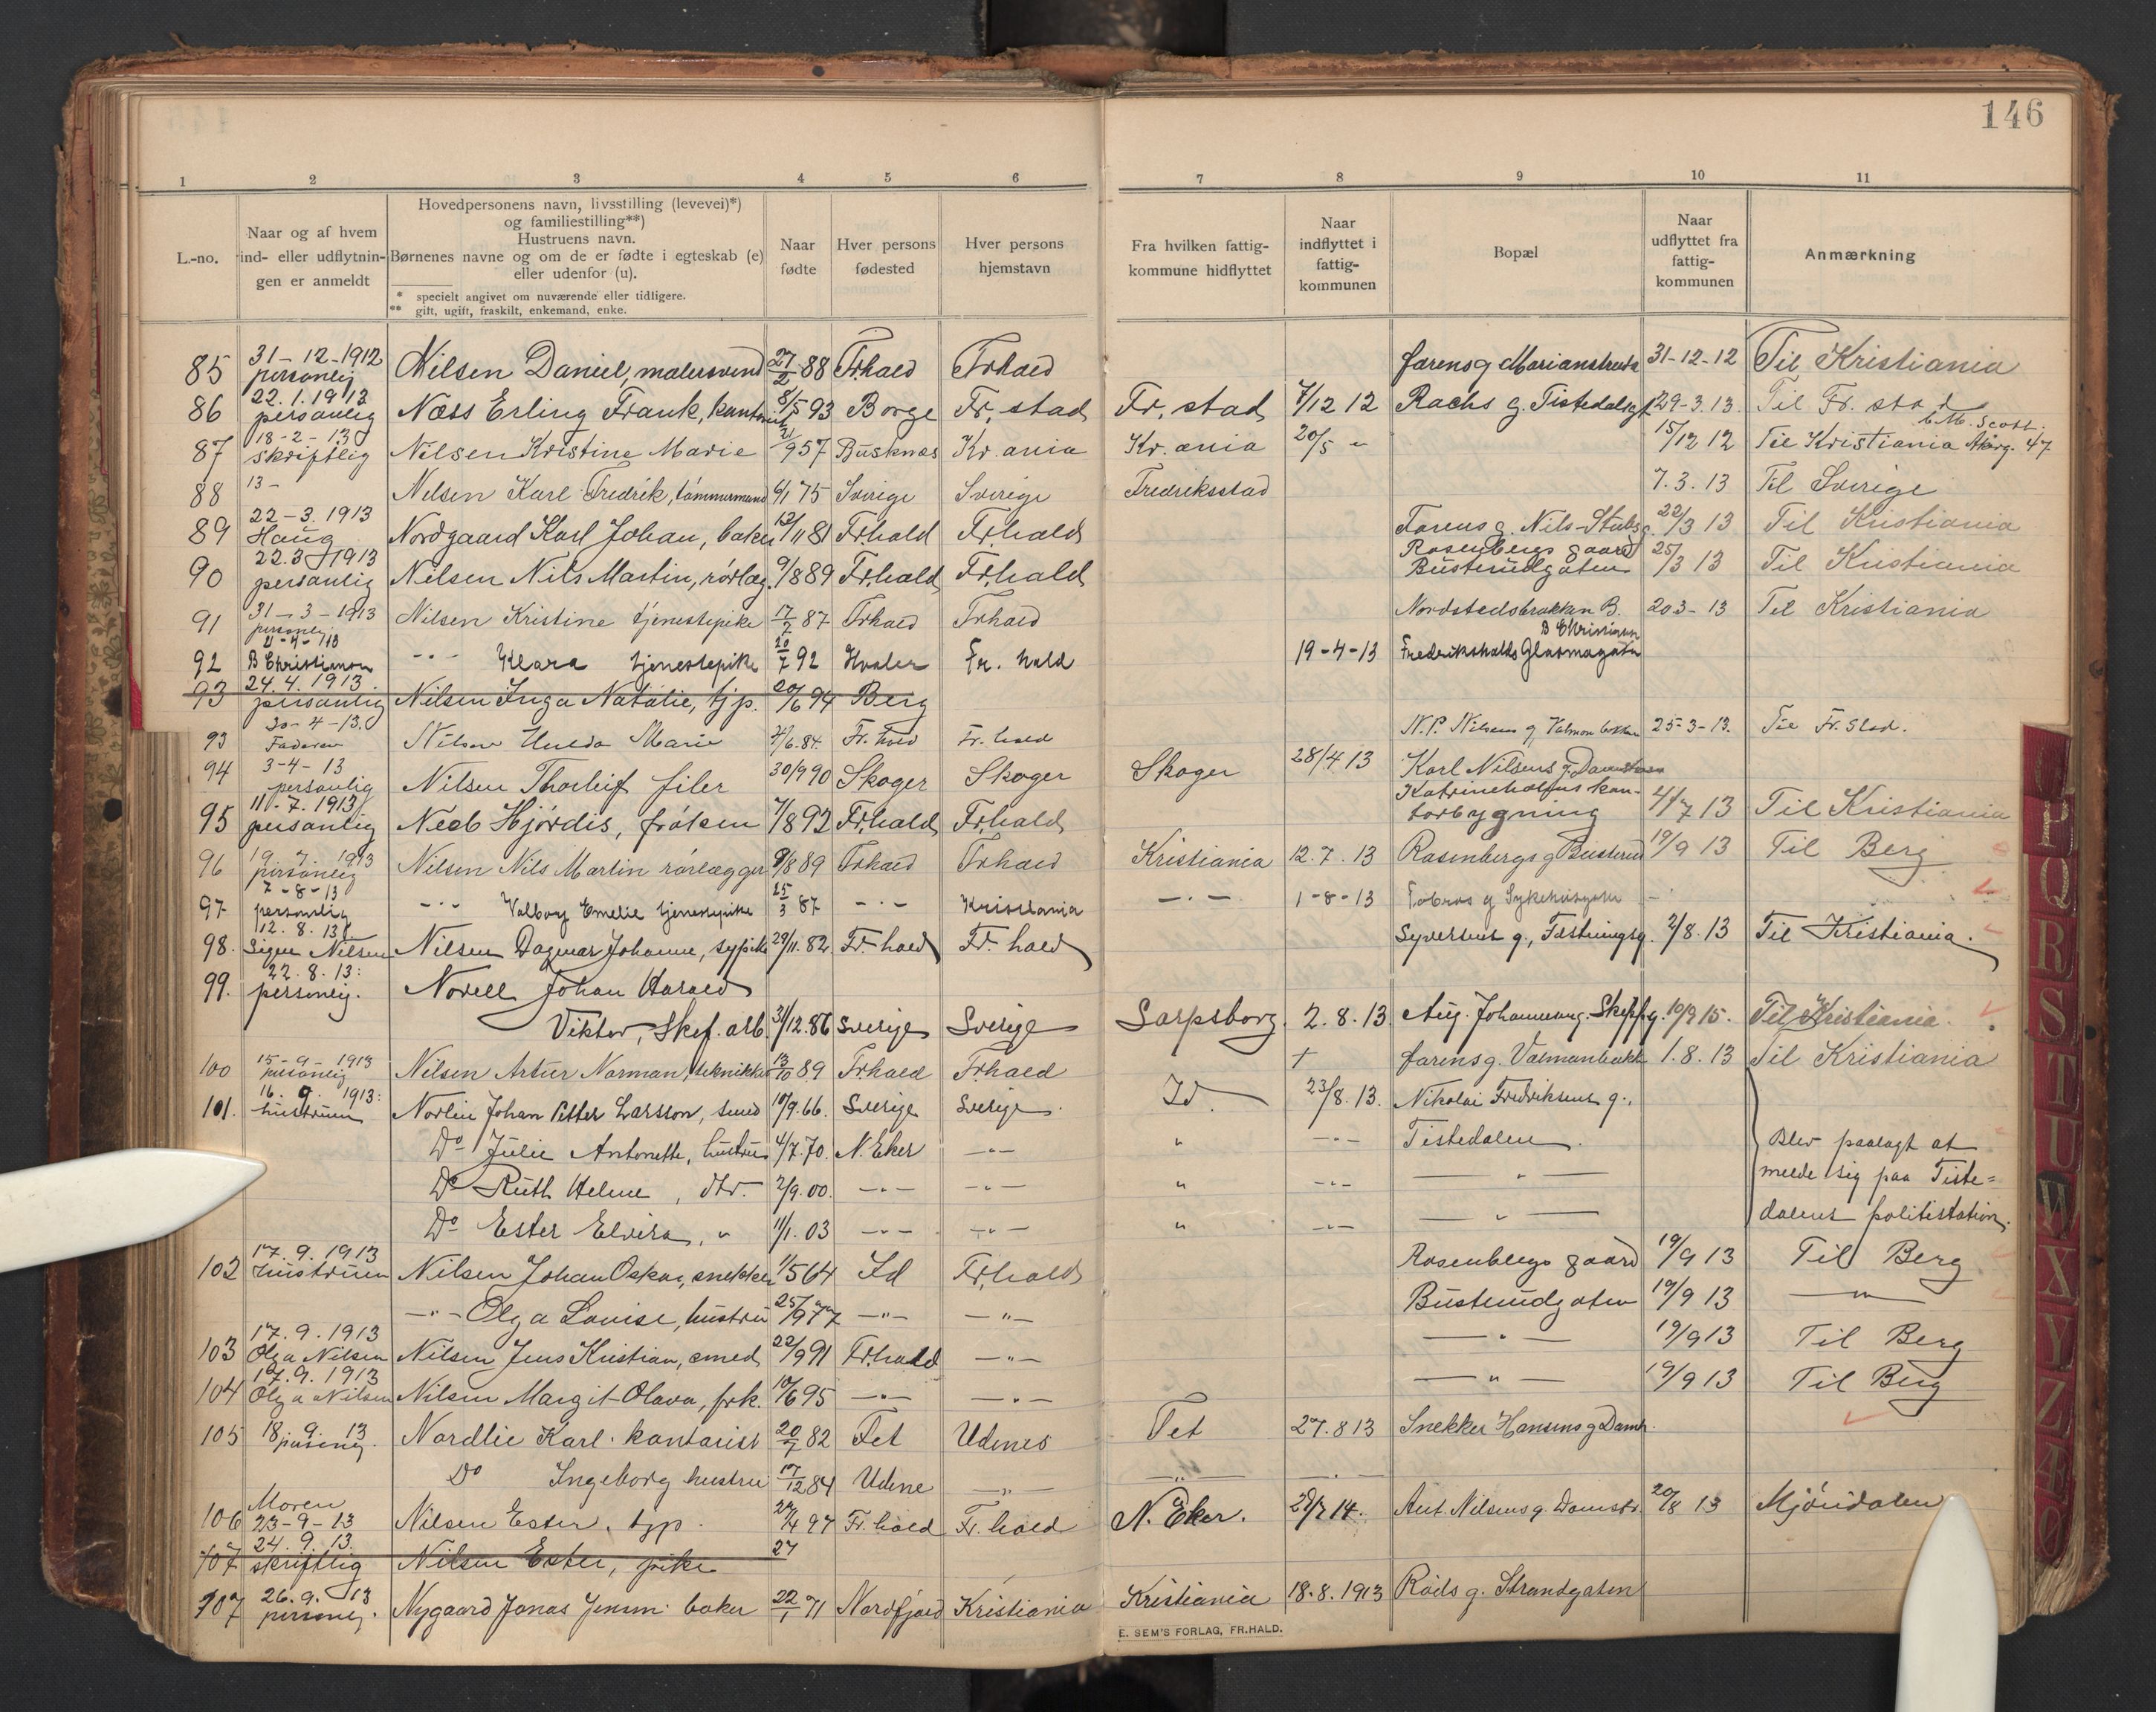 146
1 2 3 4 5 6 7 8 9 10 11
L.-no.
Naar og af hvem
ind- eller udflytnin-
gen er anmeldt
Hovedpersonens navn, livsstilling (levevei)*)
og familiestilling**)
Hustruens navn.
Børnenes navne og om de er fødte i egteskab (e)
eller udenfor (u).
* specielt angivet om nuværende eller tidligere.
** gift, ugift, fraskilt, enkemand, enke.
Naar
fødte
Hver persons
fødested
Hver persons
hjemstavn
Fra hvilken fattig-
kommune hidflyttet
Naar
indflyttet i
fattig-
kommunen
Bopæl
Naar
udflyttet fra
fattig-
kommunen
Anmærkning
31-12-1912
85 personlig Nilsen Daniel, malersvend 27/2 88 Frhald Frhald farens g Marianstreda 31-12-12 Til Kristiania
22.1.1913
86 personlig Næss Erling Frank, kontorist 8/5 93 Borge Fr. stad Fr. stad 7/12 12 Rachs g. Tistedalsg 29-3.13. Til Fr. stad
18-2-13
87 skriftlig Nilsen Kristine Marie 57 Busknes Kr. ania Kr. ania 20/5 " 15/12 12 Til Kristiania 47
13-
88 Nilsen Karl Fredrik, tømmermand 6/1 75 Sverige Sverige Fredriksstad 7.3.13 Til Sverige
22-3.1913
89 Haug Nordgaard Karl Johan, baker 13/11 81 Frhald Frhald Farens g. Nils-Stubsg. 22/3 13 Til Kristiania
22.3.1913 Rosenbergs gaard
90 personlig Nilsen Nils Martin, rørlæg. 9/8 89 Fr.hald Fr.hald Busterudgaten 25/3 13 Til Kristiania
31-3-1913
91 personlig Nilsen Kristine tjenestepike 17/7 87 Frhald Frhald Nordstedsbrakken B. 20.3-13 Til Kristiania
11-4-13 B Christiansen
92 B Christiansen -"- Klara tjenestepike 20/7 92 Hvaler Fr. hald 19-4-13 Fredrikshalds Glasmagasin
24.4.1913.
93 personlig Nilsen Inga Natalie, tjp. 20/6 94 Berg
30-4-13.
93 Faderen Nilsen Hulda Marie 4/6.84. Fr. hald Fr. hald N.P. Nilsens g, Valmanbakken 25-3-13. Til Fr. Stad.
3-4-13
94 personlig Nilsen Thorleif filer 30/9 90 Skoger Skoger Skoger 28/4 13 Karl Nilsens g.
11-7.1913 Katrineholms kon-
95 personlig Neeb Hjørdis, frøken 7/8 92 Fr.hald Fr.hald torbygning 4/7 13 Til Kristiania
19 7 1913
96 personlig Nilsen Nils Martin rørlægger 9/8 89 Frhald Frhald Kristiania 12.7.13 Rosenbergs g Busterud 19/9 13 Til Berg
7-8-13
97 personlig -"- Valborg Emelie tjenestepike 25/3 87 -"- Kristiania -"- 1-8-13 g
12.8.13.
98. Signe Nilsen Nilsen Dagmar Johanne, sypike 29/11.82. Fr-hald Fr-hald Syversens g., Fæstningsg. 2/8.13 Til Kristiania.
22.8.13:
99. personlig. Norell Johan Harald
Viktor, Skof. arb. 31/12.86 Sverige Sverige Sarpsborg. 2.8.13. Aug. Johannesens g. 10/9 15. Til Kristiania.
15-9-1913
100 personlig Nilsen Artur Norman, tekniker 13/10 89 Frhald Frhald + farens g. Valmanbakk 1.8.13 Til Kristiania
16.9.1913:
101. hustruen Norlin Johan Petter Larsson, smed 10/9.66. Sverige Sverige. Id. 23/8.13. Nikolai Fredriksens g.,
Do Julie Antonette, hustru 4/7.70. N. Eker -"- " -"- Tistedalen. Blev paalagt at
Do Ruth Helene, dtr. 2/9.00. -"- -"- " -"- -"- melde sig paa Tiste=
Do Ester Elvira, " 11/1.03 -"- -"- " -"- -"- dalens politistation.
17.9.1913
102 hustruen Nilsen Johan Oskar, snekker 1/5 64 Id Fr.hald Rosenbergs gaard 19/9 13 Til Berg
-"- Olga Lovise, hustru 25/9 77 -"- -"- Busterudgaten 19/9 13 -"-
17.9.1913
103 Olga Nilsen Nilsen Jens Kristian, smed 22/9 91 Fr.hald -"- -"- 19/9 13 Til Berg
17.9.1913
104 Olga Nilsen Nilsen Margit Olava, frk. 10/6 95 -"- -"- -"- 19/9 13 Til Berg
105 18 9 13 personlig. Nordlie Karl. kontorist 20/7 82 Fet Udenes Fet 27.8 13 Snekker Hansens g Damh.
Do Ingeborg hustru 17/12 84 Udene -"- -"- -"-
Moren
106 23-9-13 Nilsen Ester, tjp. 27/4 97 Fr. hald Fr. hald N. Eker. 14. Ant. Nilsens g. Damstr. 20/8 13 Mjøndalen
24.9.13.
107 skriftlig Nilsen Ester, pike 27
26.9.13
107 personlig. Nygaard Jonas Jensen. baker 22/1 71 Nordfjord Kristiania Kristiania 18.8.1913 Røds g. Strandgaten
E. SEM'S FORLAG, FR.HALD.
P
Q
R
S
T
U
W
X
Y
Z
Æ
Ø